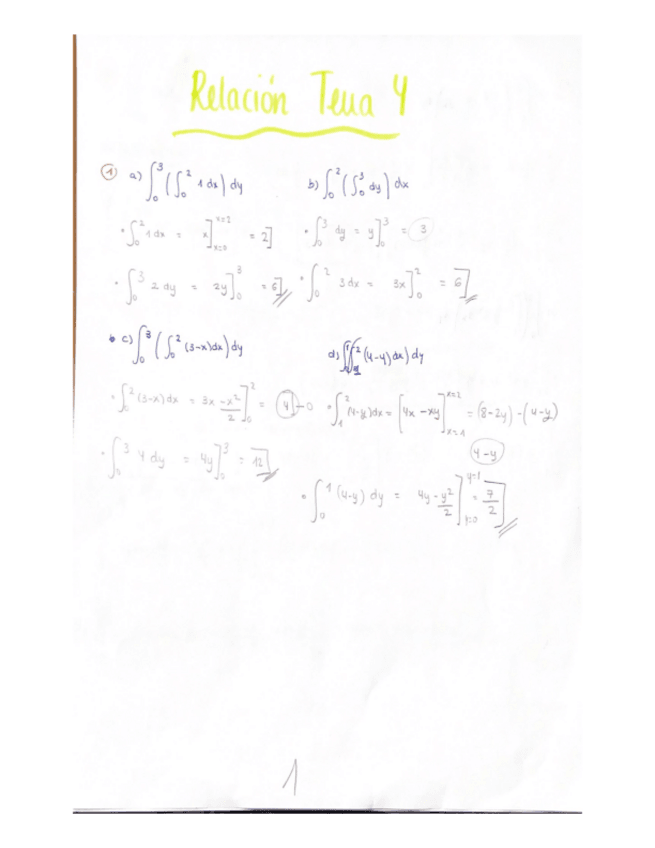 Relación Tema 4
① a) ∫₀³ (∫₀² 1 dx) dy b) ∫₀² (∫₀³ dy) dx
• ∫₀² 1 dx = x]ₓ₌₀ˣ⁼² = 2] • ∫₀³ dy = y]₀³ = 3
• ∫₀³ 2 dy = 2y]₀³ = 6] • ∫₀² 3 dx = 3x]₀² = 6]
c) ∫₀³ (∫₀² (3-x)dx) dy d) ∫₀¹ ∫₁² (4-y) dx) dy
• ∫₀² (3-x) dx = 3x - x²/2]₀² = 4 - 0 • ∫₁² (4-y)dx = [4x - xy]ₓ₌₁ˣ⁼² = (8-2y) - (4-y)
4-y
• ∫₀³ 4 dy = 4y]₀³ = 12]
• ∫₀¹ (4-y) dy = 4y - y²/2]_{y=0}^{y=1} = 7/2]
1